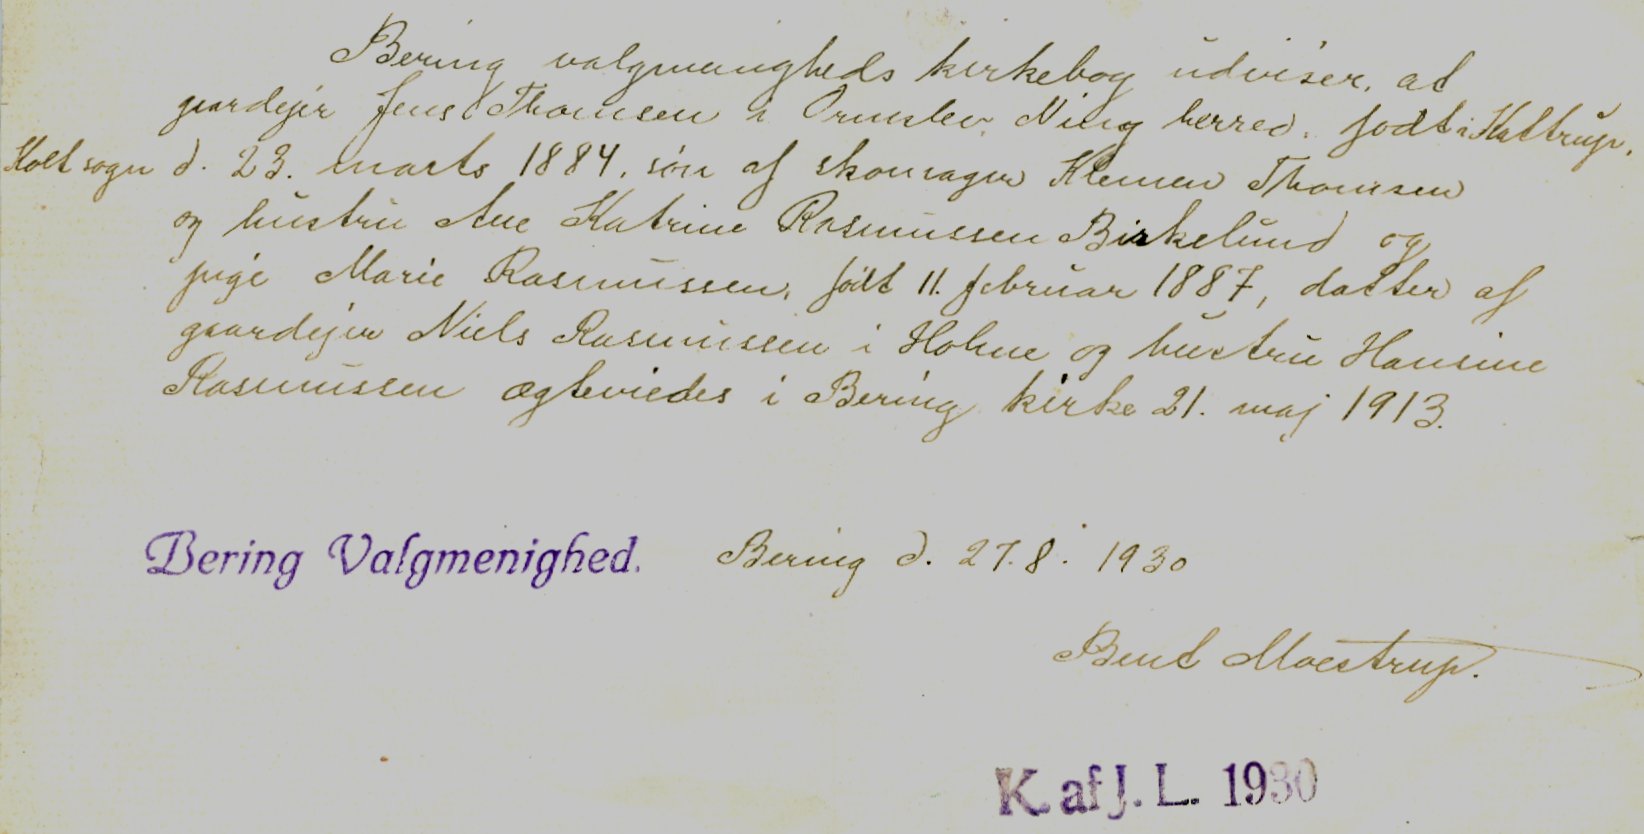 Bering valgmenigheds kirkebog udviser, at
gaardejer Jens Thomsen i Ormslev, Ning herred. født i Kattrup,
Kolt sogn d. 23. marts 1884, søn af skomager Klemen Thomsen
og hustru Ane Katrine Rasmussen Birkelund og
pige Marie Rasmussen, født 11. februar 1887, datter af
gaardejer Niels Rasmussen i Holme og hustru Hansine
Rasmussen ægteviedes i Bering kirke 21. maj 1913.
Bering Valgmenighed. Bering d. 27.8. 1930
Bent Moestrup.
K. af J. L. 1930